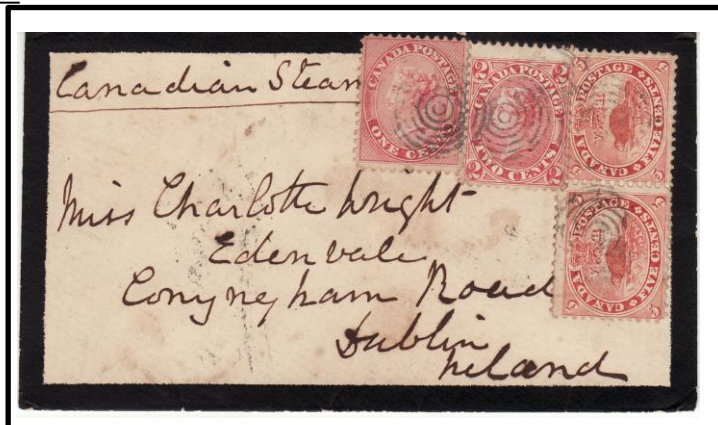 Canadian Stea
CANADA POSTAGE
ONE CENT
CANADA POSTAGE
2 2
TWO CENTS
2 2
CANADA POSTAGE
FIVE CENTS
5 5
CANADA POSTAGE
FIVE CENTS
5 5
Miss Charlotte Wright
Edenvale
Conyngham Road
Dublin
Ireland